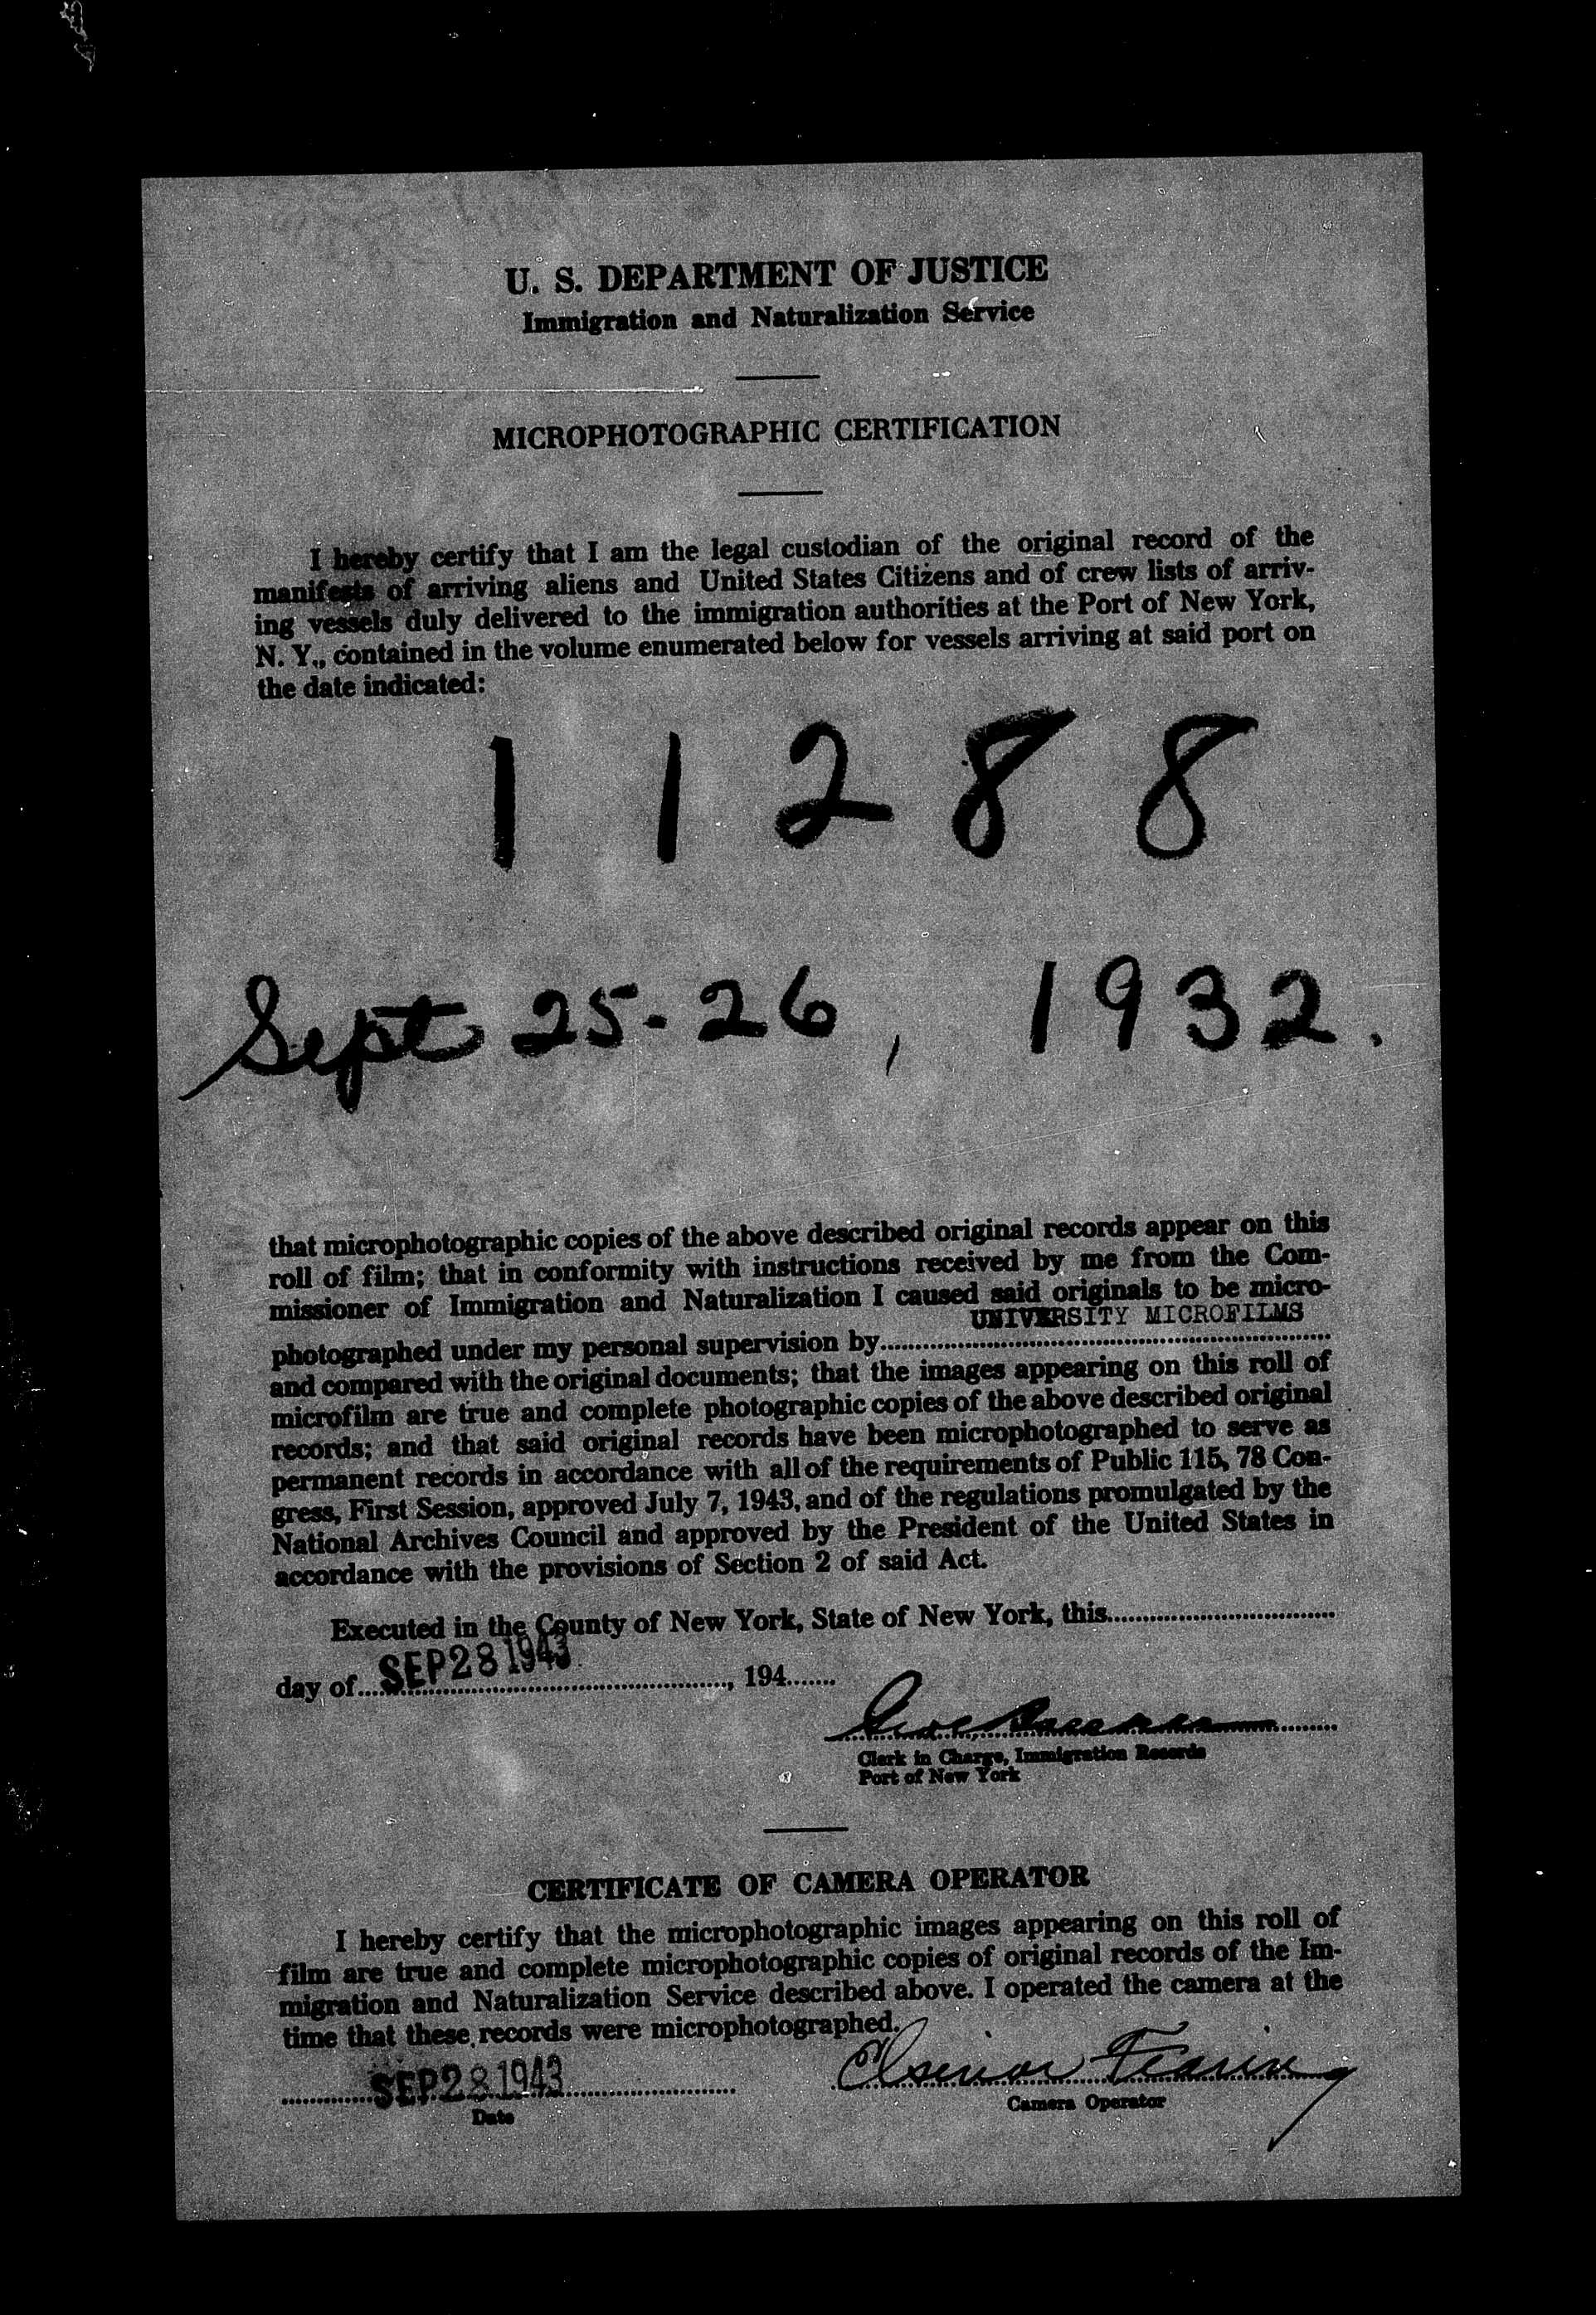 U. S. DEPARTMENT OF JUSTICE
Immigration and Naturalization Service
MICROPHOTOGRAPHIC CERTIFICATION
I hereby certify that I am the legal custodian of the original record of the
manifests of arriving aliens and United States Citizens and of crew lists of arriv-
ing vessels duly delivered to the immigration authorities at the Port of New York,
N. Y., contained in the volume enumerated below for vessels arriving at said port on
the date indicated:
1 1 2 8 8
Sept 25-26, 1932.
that microphotographic copies of the above described original records appear on this
roll of film; that in conformity with instructions received by me from the Com-
missioner of Immigration and Naturalization I caused said originals to be micro-
UNIVERSITY MICROFILMS
photographed under my personal supervision by
and compared with the original documents; that the images appearing on this roll of
microfilm are true and complete photographic copies of the above described original
records; and that said original records have been microphotographed to serve as
permanent records in accordance with all of the requirements of Public 115, 78 Con-
gress, First Session, approved July 7, 1943, and of the regulations promulgated by the
National Archives Council and approved by the President of the United States in
accordance with the provisions of Section 2 of said Act.
Executed in the County of New York, State of New York, this
day of SEP 28 1943, 194
Clerk in Charge, Immigration Records
Port of New York
CERTIFICATE OF CAMERA OPERATOR
I hereby certify that the microphotographic images appearing on this roll of
film are true and complete microphotographic copies of original records of the Im-
migration and Naturalization Service described above. I operated the camera at the
time that these records were microphotographed.
SEP 28 1943
Date
Camera Operator